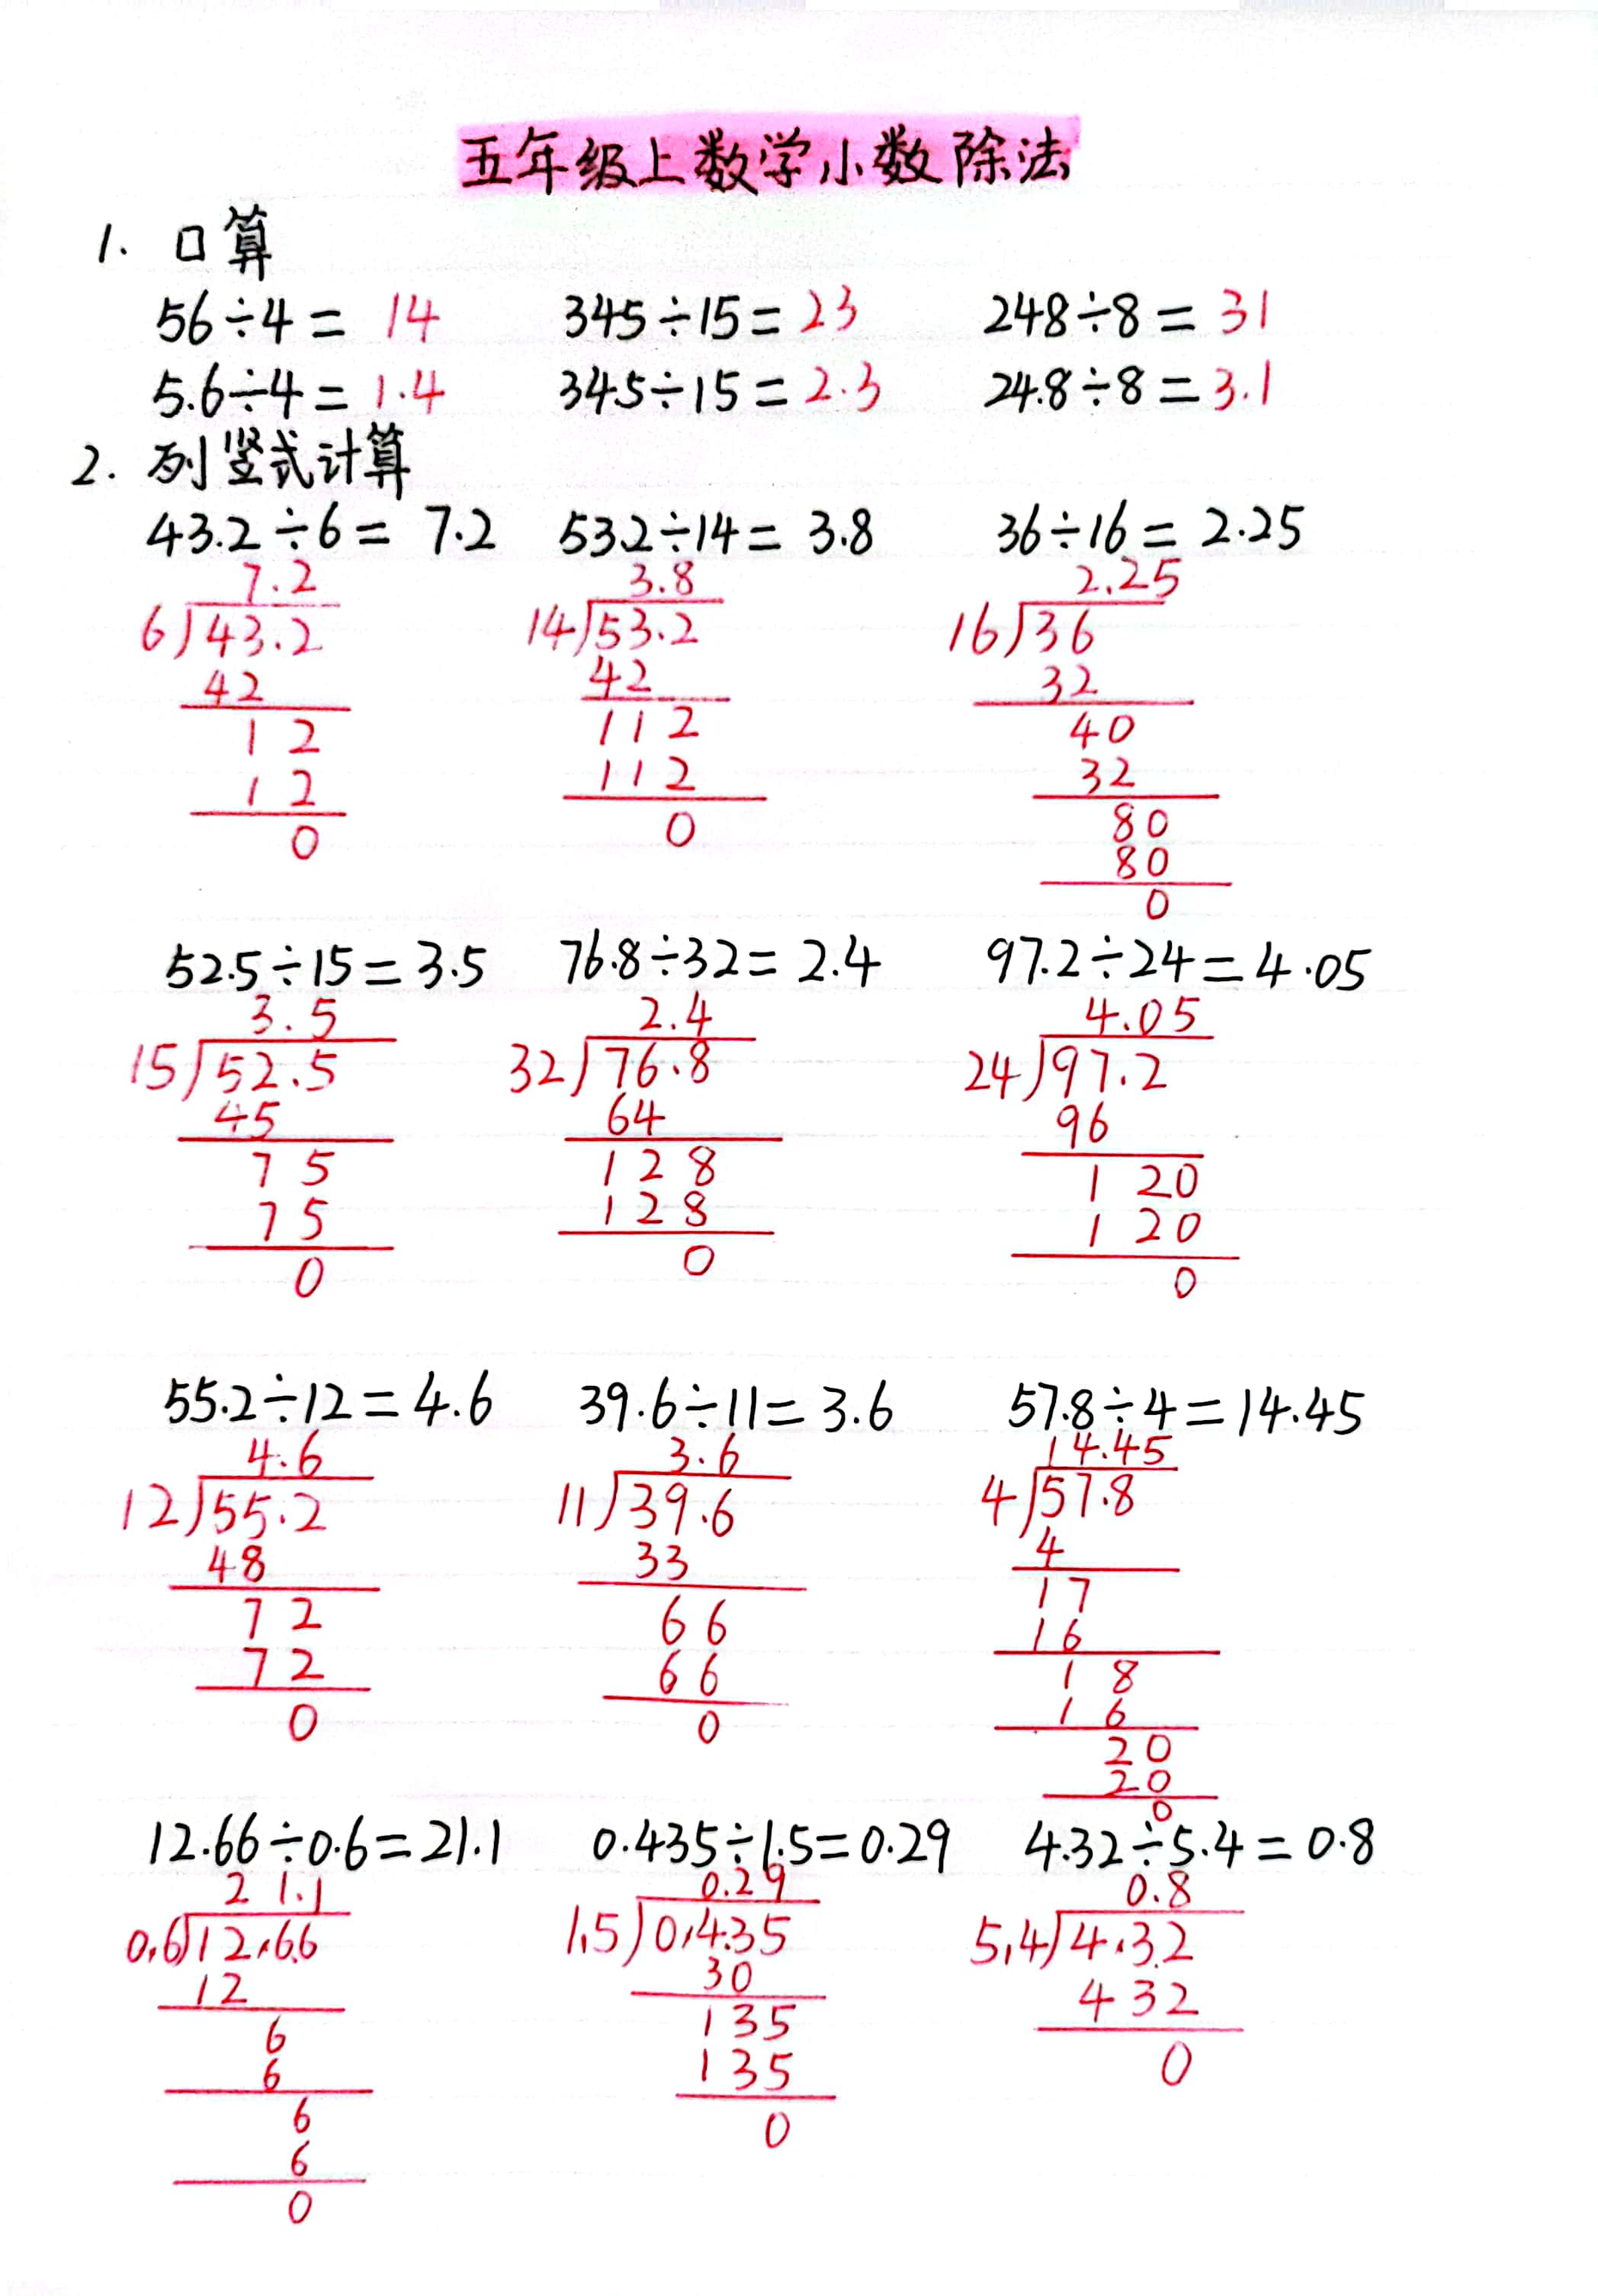 五年级上数学小数除法
1. 口算
56÷4= 14 345÷15= 23 248÷8= 31
5.6÷4= 1.4 34.5÷15= 2.3 24.8÷8= 3.1
2. 列竖式计算
43.2÷6= 7.2 53.2÷14= 3.8 36÷16= 2.25
7.2 3.8 2.25
6)43.2 14)53.2 16)36
42 42 32
12 112 40
12 112 32
0 0 80
80
0
52.5÷15=3.5 76.8÷32= 2.4 97.2÷24=4.05
3.5 2.4 4.05
15)52.5 32)76.8 24)97.2
45 64 96
75 128 120
75 128 120
0 0 0
55.2÷12=4.6 39.6÷11=3.6 57.8÷4=14.45
4.6 3.6 14.45
12)55.2 11)39.6 4)57.8
48 33 4
72 66 17
72 66 16
0 0 18
16
20
20
0
12.66÷0.6=21.1 0.435÷1.5=0.29 4.32÷5.4=0.8
21.1 0.29 0.8
0.6)12.6.6 1.5)0.4.35 5.4)4.3.2
12 30 432
6 135 0
6 135
6 0
6
0